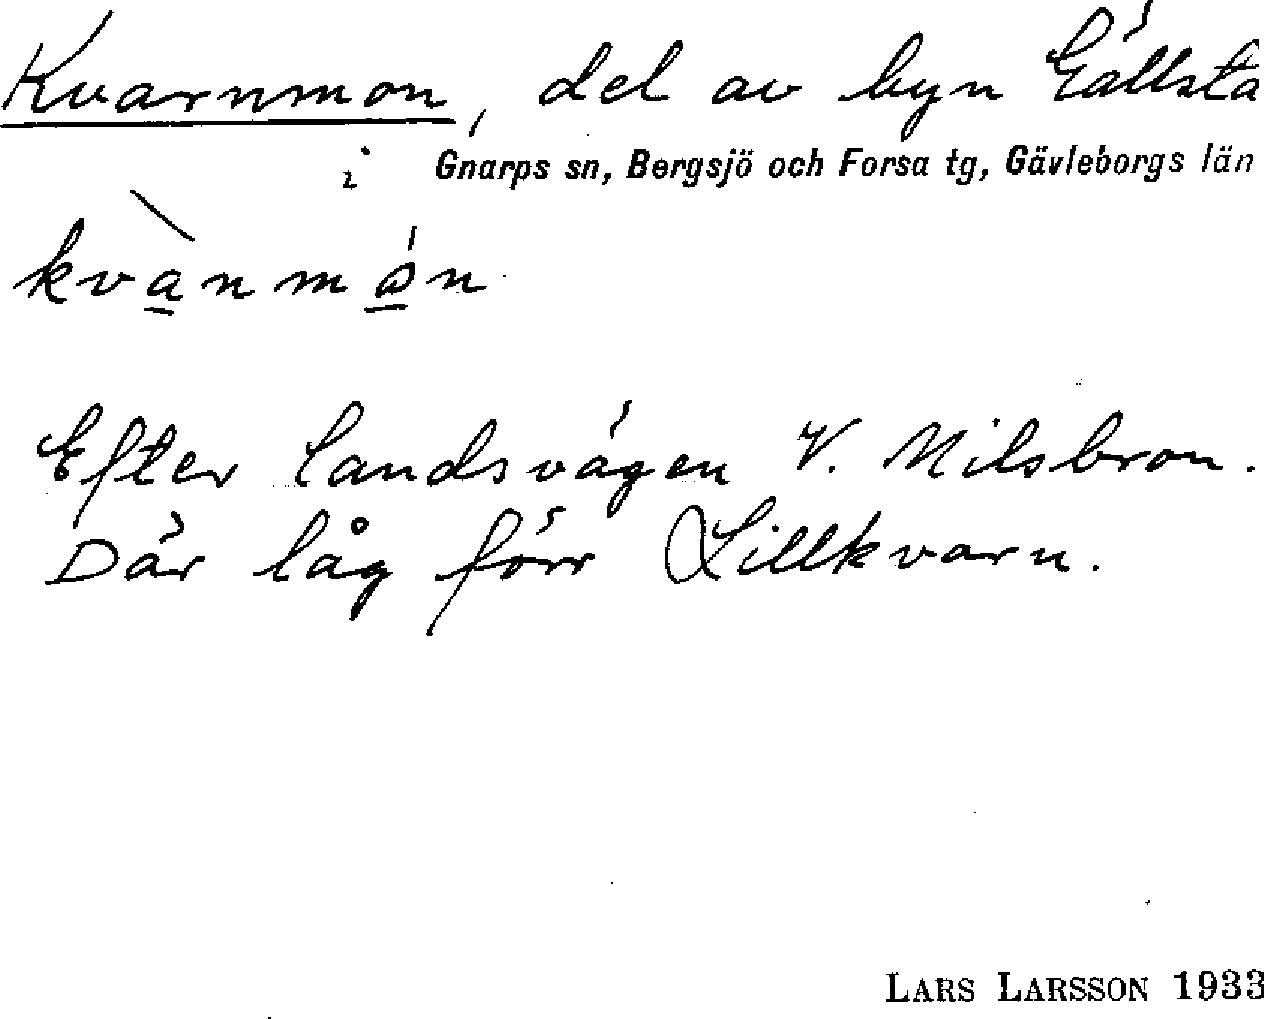 Kvarnmon, del av byn Gällsta
i Gnarps sn, Bergsjö och Forsa tg, Gävleborgs län
kvànmón
Efter landsvägen V. Nilsbron.
Där låg förr Lillkvarn.
LARS LARSSON 1933